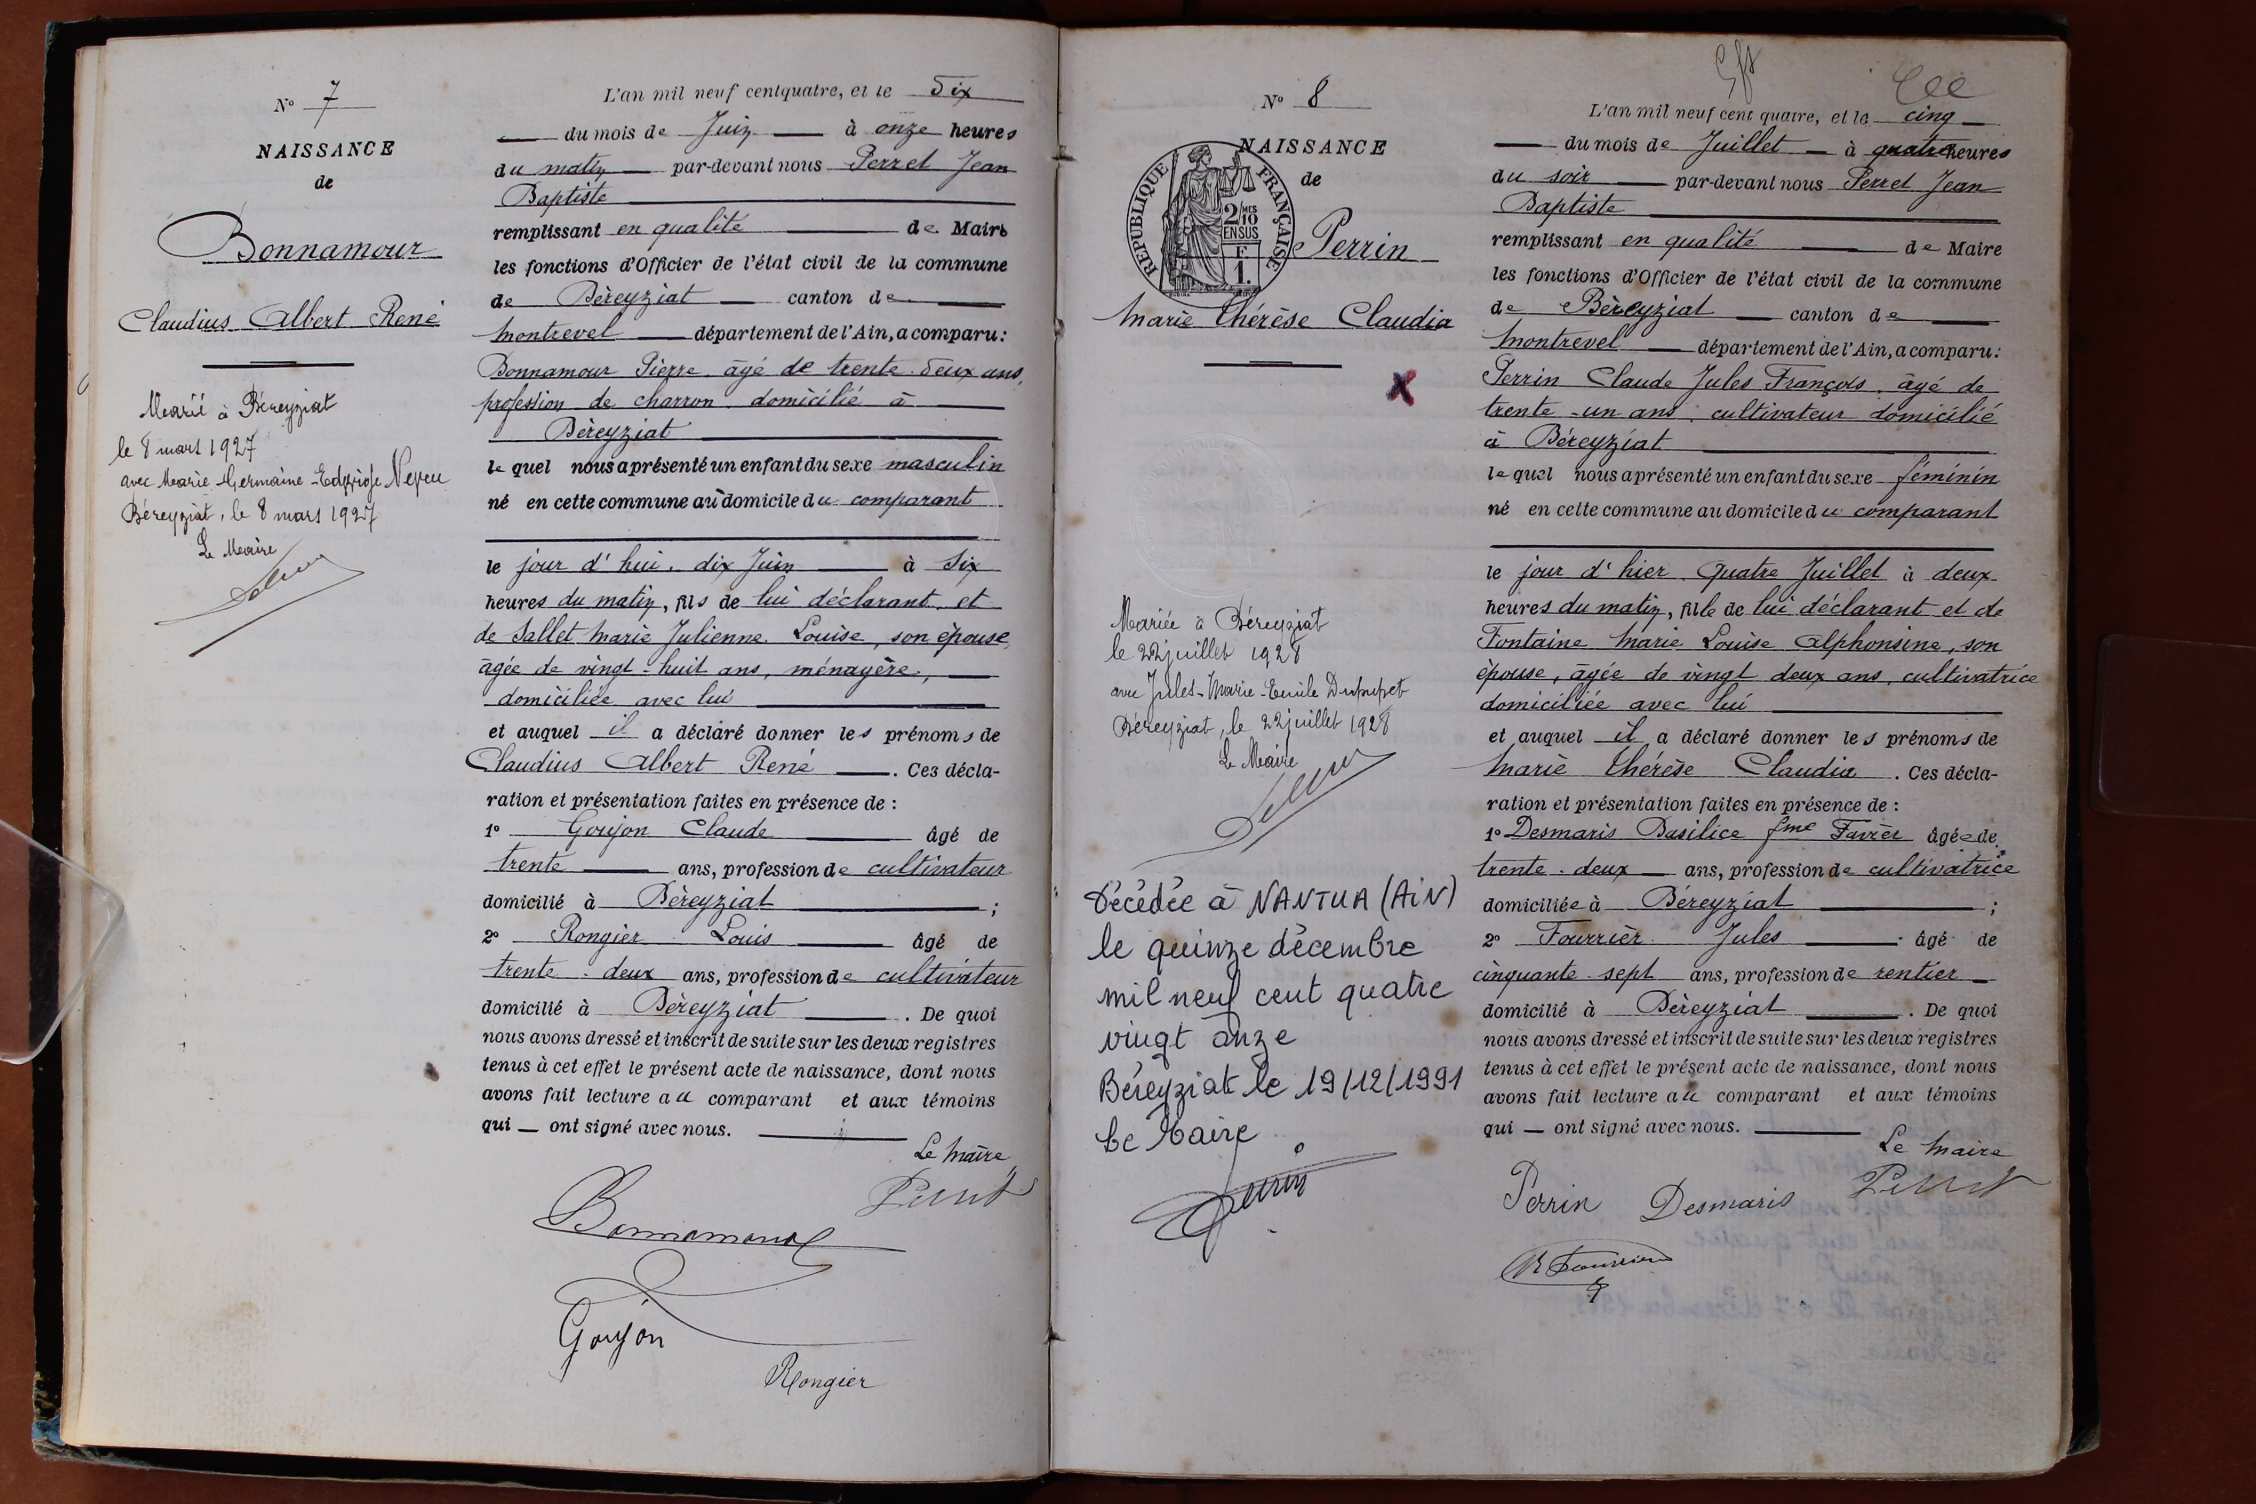 N° 7
NAISSANCE
de
Bonnamour
Claudius Albert René
Marié à Béreyziat
le 8 mars 1927
avec Marie Germaine-Edwige Neveu
Béreyziat, le 8 mars 1927
Le Maire
L'an mil neuf centquatre, et le dix
du mois de Juin à onze heures
du matin par-devant nous Perret Jean
Baptiste
remplissant en qualité de Maire
les fonctions d'Officier de l'état civil de la commune
de Béreyziat canton de
Montrevel département de l'Ain, a comparu:
Bonnamour Pierre âgé de trente-deux ans,
profession de charron domicilié à
Béreyziat
le quel nous a présenté un enfant du sexe masculin
né en cette commune au domicile du comparant
le jour d'hui, dix Juin à six
heures du matin, fils de lui déclarant et
de Sallet Marie Julienne Louise, son épouse,
âgée de vingt-huit ans, ménagère,
domiciliée avec lui
et auquel il a déclaré donner les prénoms de
Claudius Albert René. Ces décla-
ration et présentation faites en présence de :
1° Goujon Claude âgé de
trente ans, profession de cultivateur
domicilié à Béreyziat ;
2° Rongier Louis âgé de
trente-deux ans, profession de cultivateur
domicilié à Béreyziat. De quoi
nous avons dressé et inscrit de suite sur les deux registres
tenus à cet effet le présent acte de naissance, dont nous
avons fait lecture au comparant et aux témoins
qui — ont signé avec nous.
Le Maire,
Perret
Bonnamour
Goujon
Rongier
N° 8
NAISSANCE
de
REPUBLIQUE FRANÇAISE
2/10 MES
EN SUS
F
1.
Perrin
Marie Thérèse Claudia
X
Mariée à Béreyziat
le 22 juillet 1928
avec Jules-Marie-Emile Dupupet
Béreyziat, le 22 juillet 1928
Le Maire
Décédée à NANTUA (AIN)
le quinze décembre
mil neuf cent quatre
vingt onze
Béreyziat le 19/12/1991
Le Maire
L'an mil neuf cent quatre, et le cinq
du mois de Juillet à quatre heures
du soir par-devant nous Perret Jean
Baptiste
remplissant en qualité de Maire
les fonctions d'Officier de l'état civil de la commune
de Béreyziat canton de
Montrevel département de l'Ain, a comparu:
Perrin Claude Jules François âgé de
trente-un ans, cultivateur domicilié
à Béreyziat
le quel nous a présenté un enfant du sexe féminin
né en cette commune au domicile du comparant
le jour d'hier Quatre Juillet à deux
heures du matin, fille de lui déclarant et de
Fontaine Marie Louise Alphonsine, son
épouse, âgée de vingt deux ans, cultivatrice
domiciliée avec lui
et auquel il a déclaré donner les prénoms de
Marie Thérèse Claudia. Ces décla-
ration et présentation faites en présence de :
1° Desmaris Basilice fme Favier âgée de
trente-deux ans, profession de cultivatrice
domiciliée à Béreyziat ;
2° Fourrier Jules âgé de
cinquante-sept ans, profession de rentier
domicilié à Béreyziat. De quoi
nous avons dressé et inscrit de suite sur les deux registres
tenus à cet effet le présent acte de naissance, dont nous
avons fait lecture au comparant et aux témoins
qui — ont signé avec nous.
Le Maire
Perrin Desmaris Perret